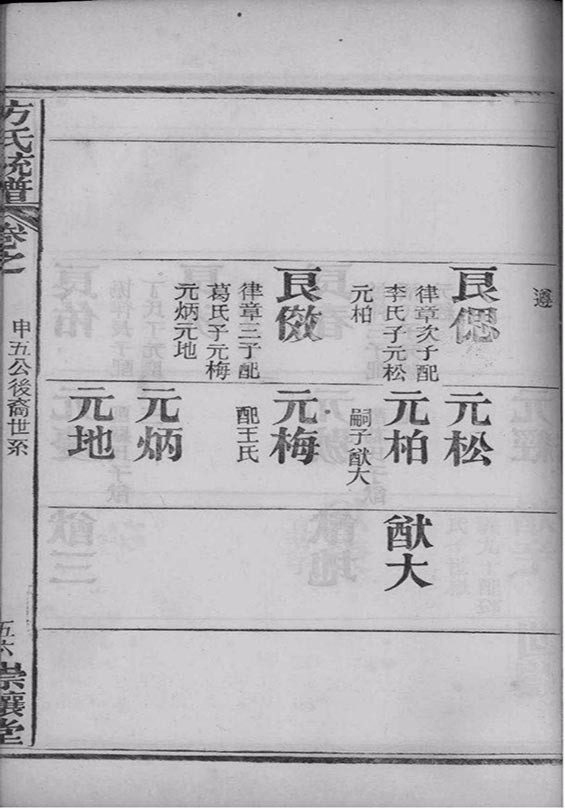 遵
良偲
律章次子配
李氏子元松
元柏
良儆
律章三子配
葛氏子元梅
元炳元地
元松
元柏
嗣子猷大
元梅
配王氏
元炳
元地
猷大
方氏統譜
卷之
申五公後裔世系
五六
崇讓堂